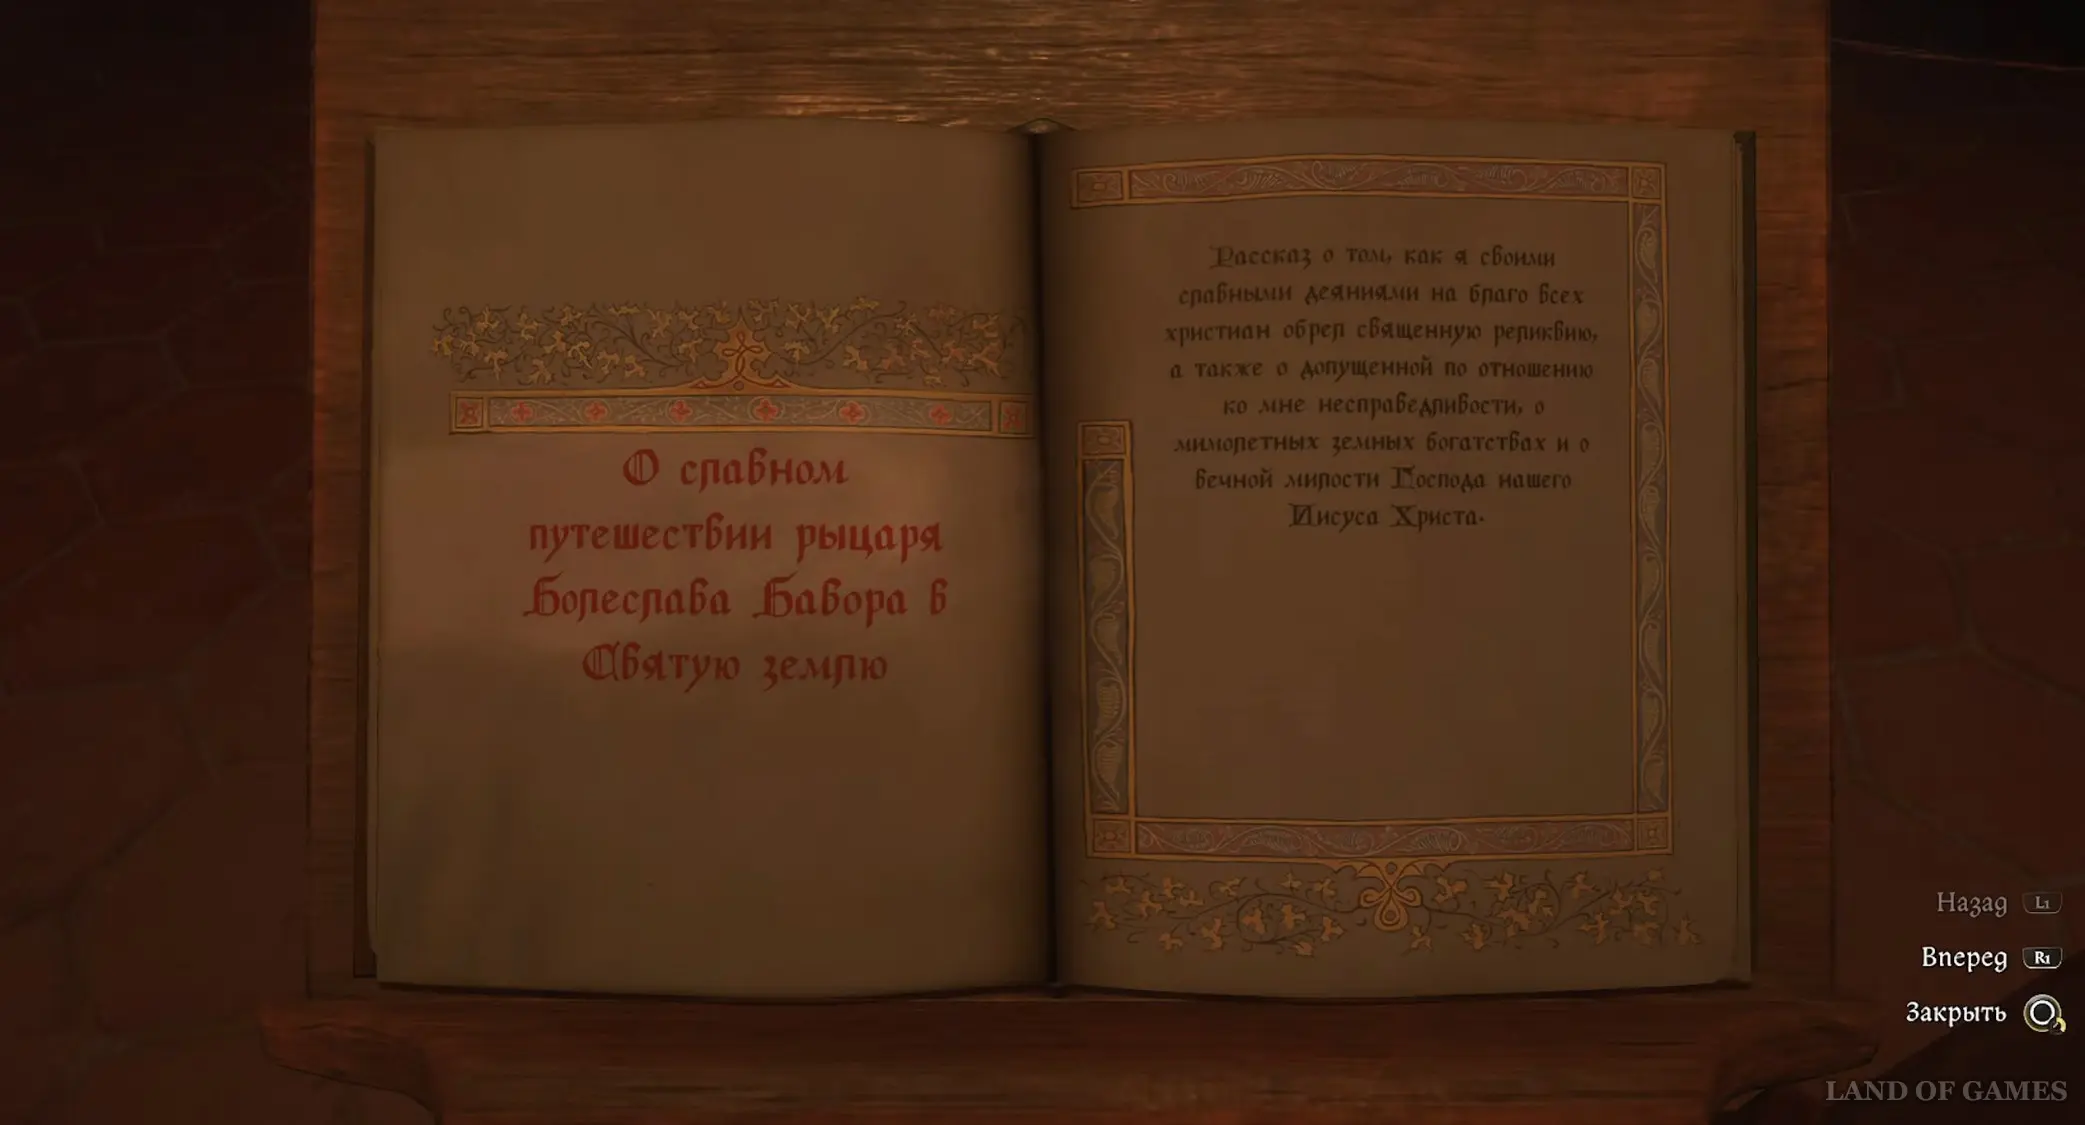 О славном
путешествии рыцаря
Болеслава Бавора в
Святую землю
Рассказ о том, как я своими
славными деяниями на благо всех
христиан обрел священную реликвию,
а также о допущенной по отношению
ко мне несправедливости, о
мимолетных земных богатствах и о
вечной милости Господа нашего
Иисуса Христа.
Назад L1
Вперед R1
Закрыть
LAND OF GAMES